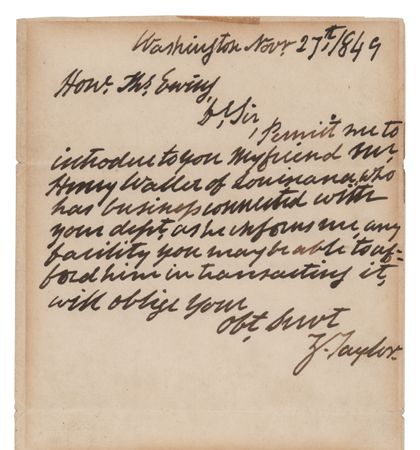 Washington Novr. 27th/1849
Hon. Ths. Ewing,
Dr. Sir,
Permit me to
introduce to you my friend Mr.
Henry Waller of Louisiana, who
has business connected with
your dept. as he informs me, any
facility you may be able to af-
ford him in transacting it,
will oblige your
Obt. Servt
Z. Taylor.